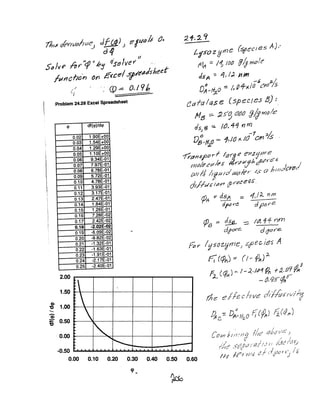 This derivative, df(φ)/dφ, equals 0.
Solve for "φ" by "solver"
function on Excel spreadsheet
φ = 0.196
Problem 24.29 Excel Spreadsheet
φ df(φ)/dφ
0.02 1.90E+00
0.03 1.54E+00
0.04 1.29E+00
0.05 1.10E+00
0.06 9.34E-01
0.07 7.97E-01
0.08 6.78E-01
0.09 5.72E-01
0.10 4.78E-01
0.11 3.93E-01
0.12 3.17E-01
0.13 2.47E-01
0.14 1.84E-01
0.15 1.26E-01
0.16 7.28E-02
0.17 2.42E-02
0.18 -2.02E-02
0.19 -6.09E-02
0.20 -9.82E-02
0.21 -1.32E-01
0.22 -1.63E-01
0.23 -1.91E-01
0.24 -2.17E-01
0.25 -2.40E-01
2.00
1.50
1.00
0.50
0.00
-0.50
df(φ) / dφ
0.00 0.10 0.20 0.30 0.40 0.50 0.60
φ
24.29
Lysozyme (species A):
MA = 14,100 g/gmole
ds,A = 4.12 nm
D°A-H2O = 1.04×10⁻⁶ cm²/s
Catalase (species B):
MB = 250,000 g/gmole
ds,B = 10.44 nm
D°B-H2O = 4.10×10⁻⁷ cm²/s
Transport large enzyme
molecules through pores
with liquid water is a hindered
diffusion process
φA = ds,A/dpore = 4.12 nm/dpore
φB = ds,B/dpore = 10.44 nm/dpore
For lysozyme, species A
F1(φA) = (1-φA)²
F2(φA) = 1-2.104φA + 2.09φA³
-0.95φA⁵
the effective diffusivity
DAe = D°A-H2O F1(φA) F2(φA)
Combining the above,
the separation factor,
in terms of dpore, is